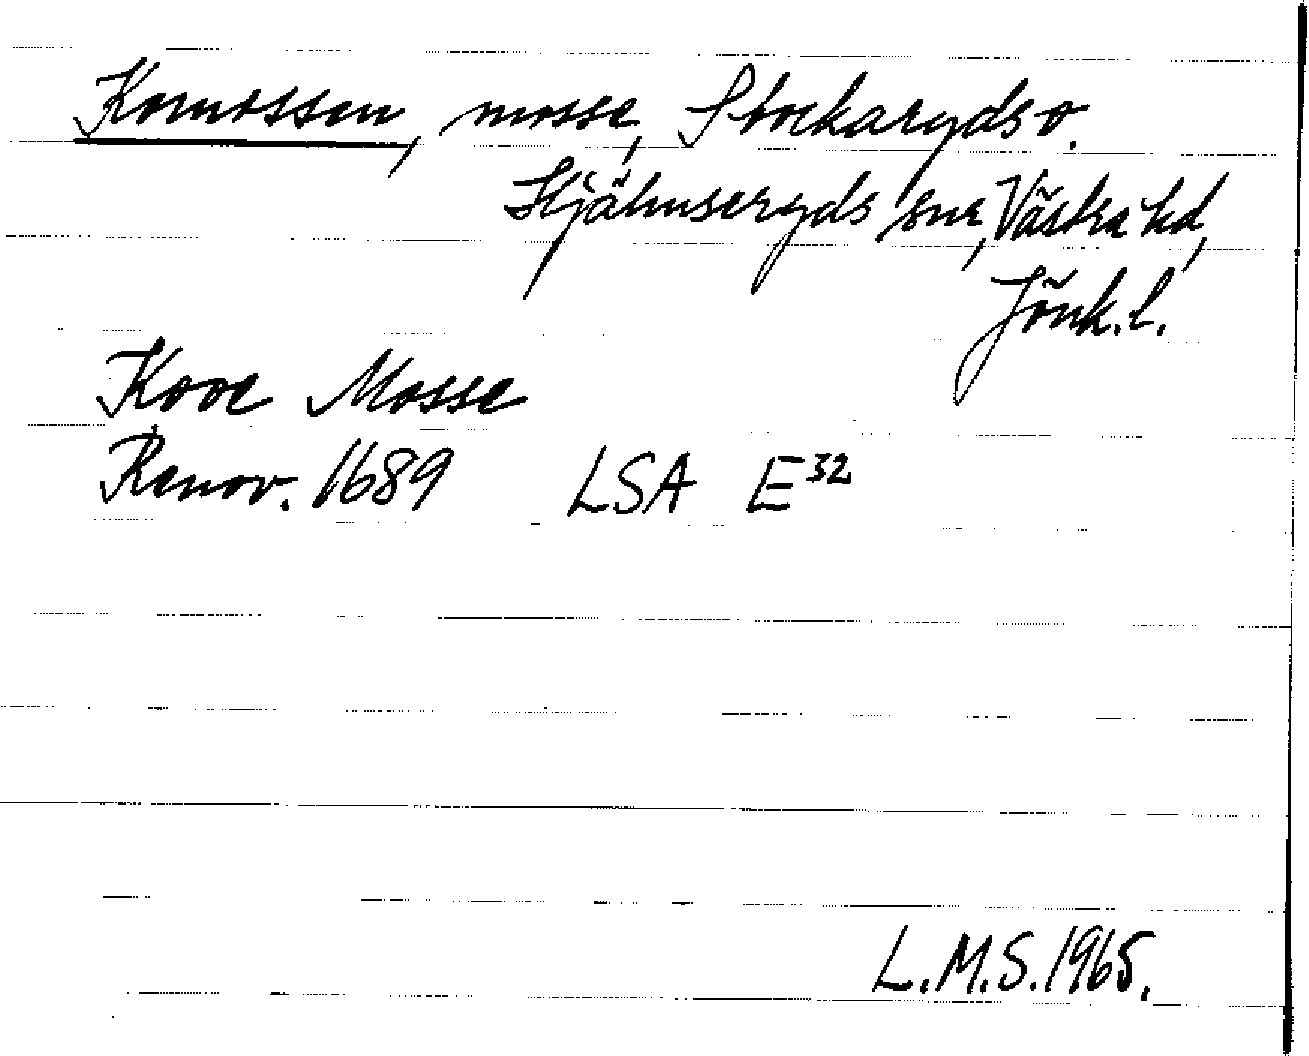 Komossen, mosse, Stockaryds o.
Hjälmseryds snr, Västra hd,
Jönk.l.
Kooe Mosse
Renov. 1689 LSA E32
L.M.S.1965.